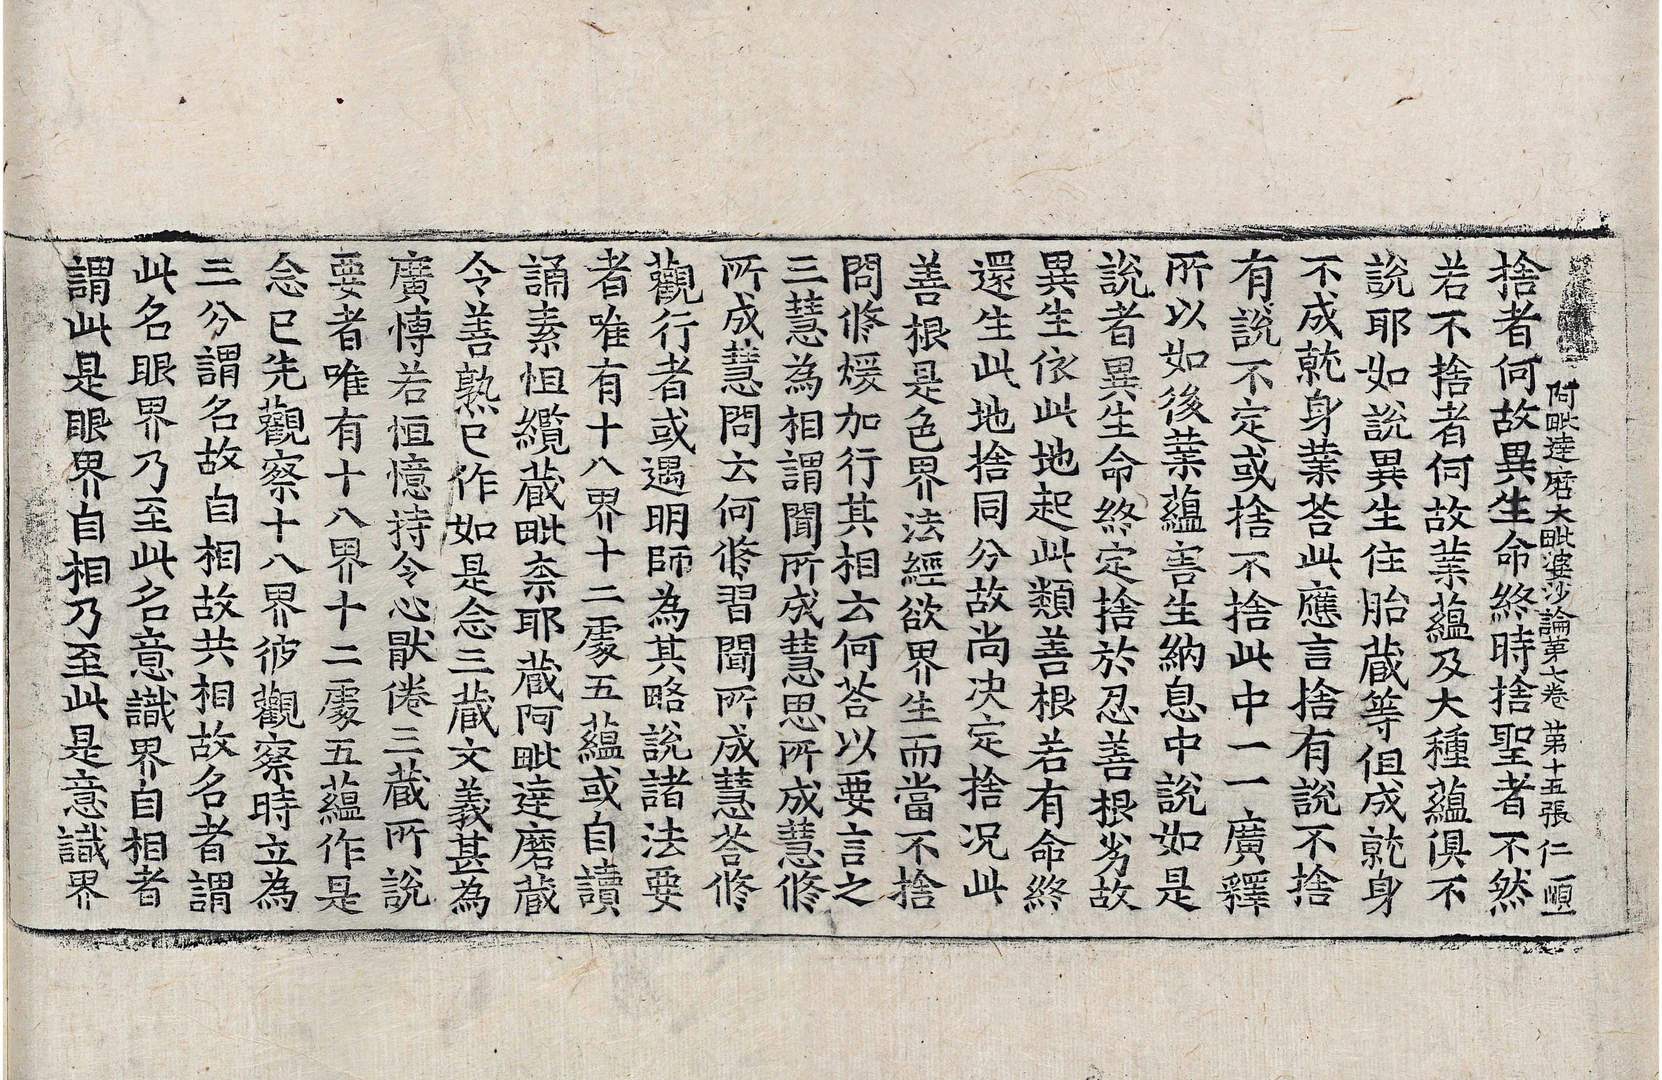 阿毗達磨大毗婆沙論第七卷 第十五張 仁
捨者何故異生命終時捨聖者不然
若不捨者何故業蘊及大種蘊俱不
說耶如說異生住胎藏等但成就身
不成就身業荅此應言捨有說不捨
有說不定或捨不捨此中一一廣釋
所以如後業蘊害生納息中說如是
說者異生命終定捨於忍善根劣故
異生依此地起此類善根若有命終
還生此地捨同分故尚決定捨況此
善根是色界法經欲界生而當不捨
問修煖加行其相云何荅以要言之
三慧為相謂聞所成慧思所成慧修
所成慧問云何修習聞所成慧荅修
觀行者或遇明師為其略說諸法要
者唯有十八界十二處五蘊或自讀
誦素怛纜藏毗柰耶藏阿毗達磨藏
令善熟已作如是念三藏文義甚為
廣博若恒憶持令心猒倦三藏所說
要者唯有十八界十二處五蘊作是
念已先觀察十八界彼觀察時立為
三分謂名故自相故共相故名者謂
此名眼界乃至此名意識界自相者
謂此是眼界自相乃至此是意識界